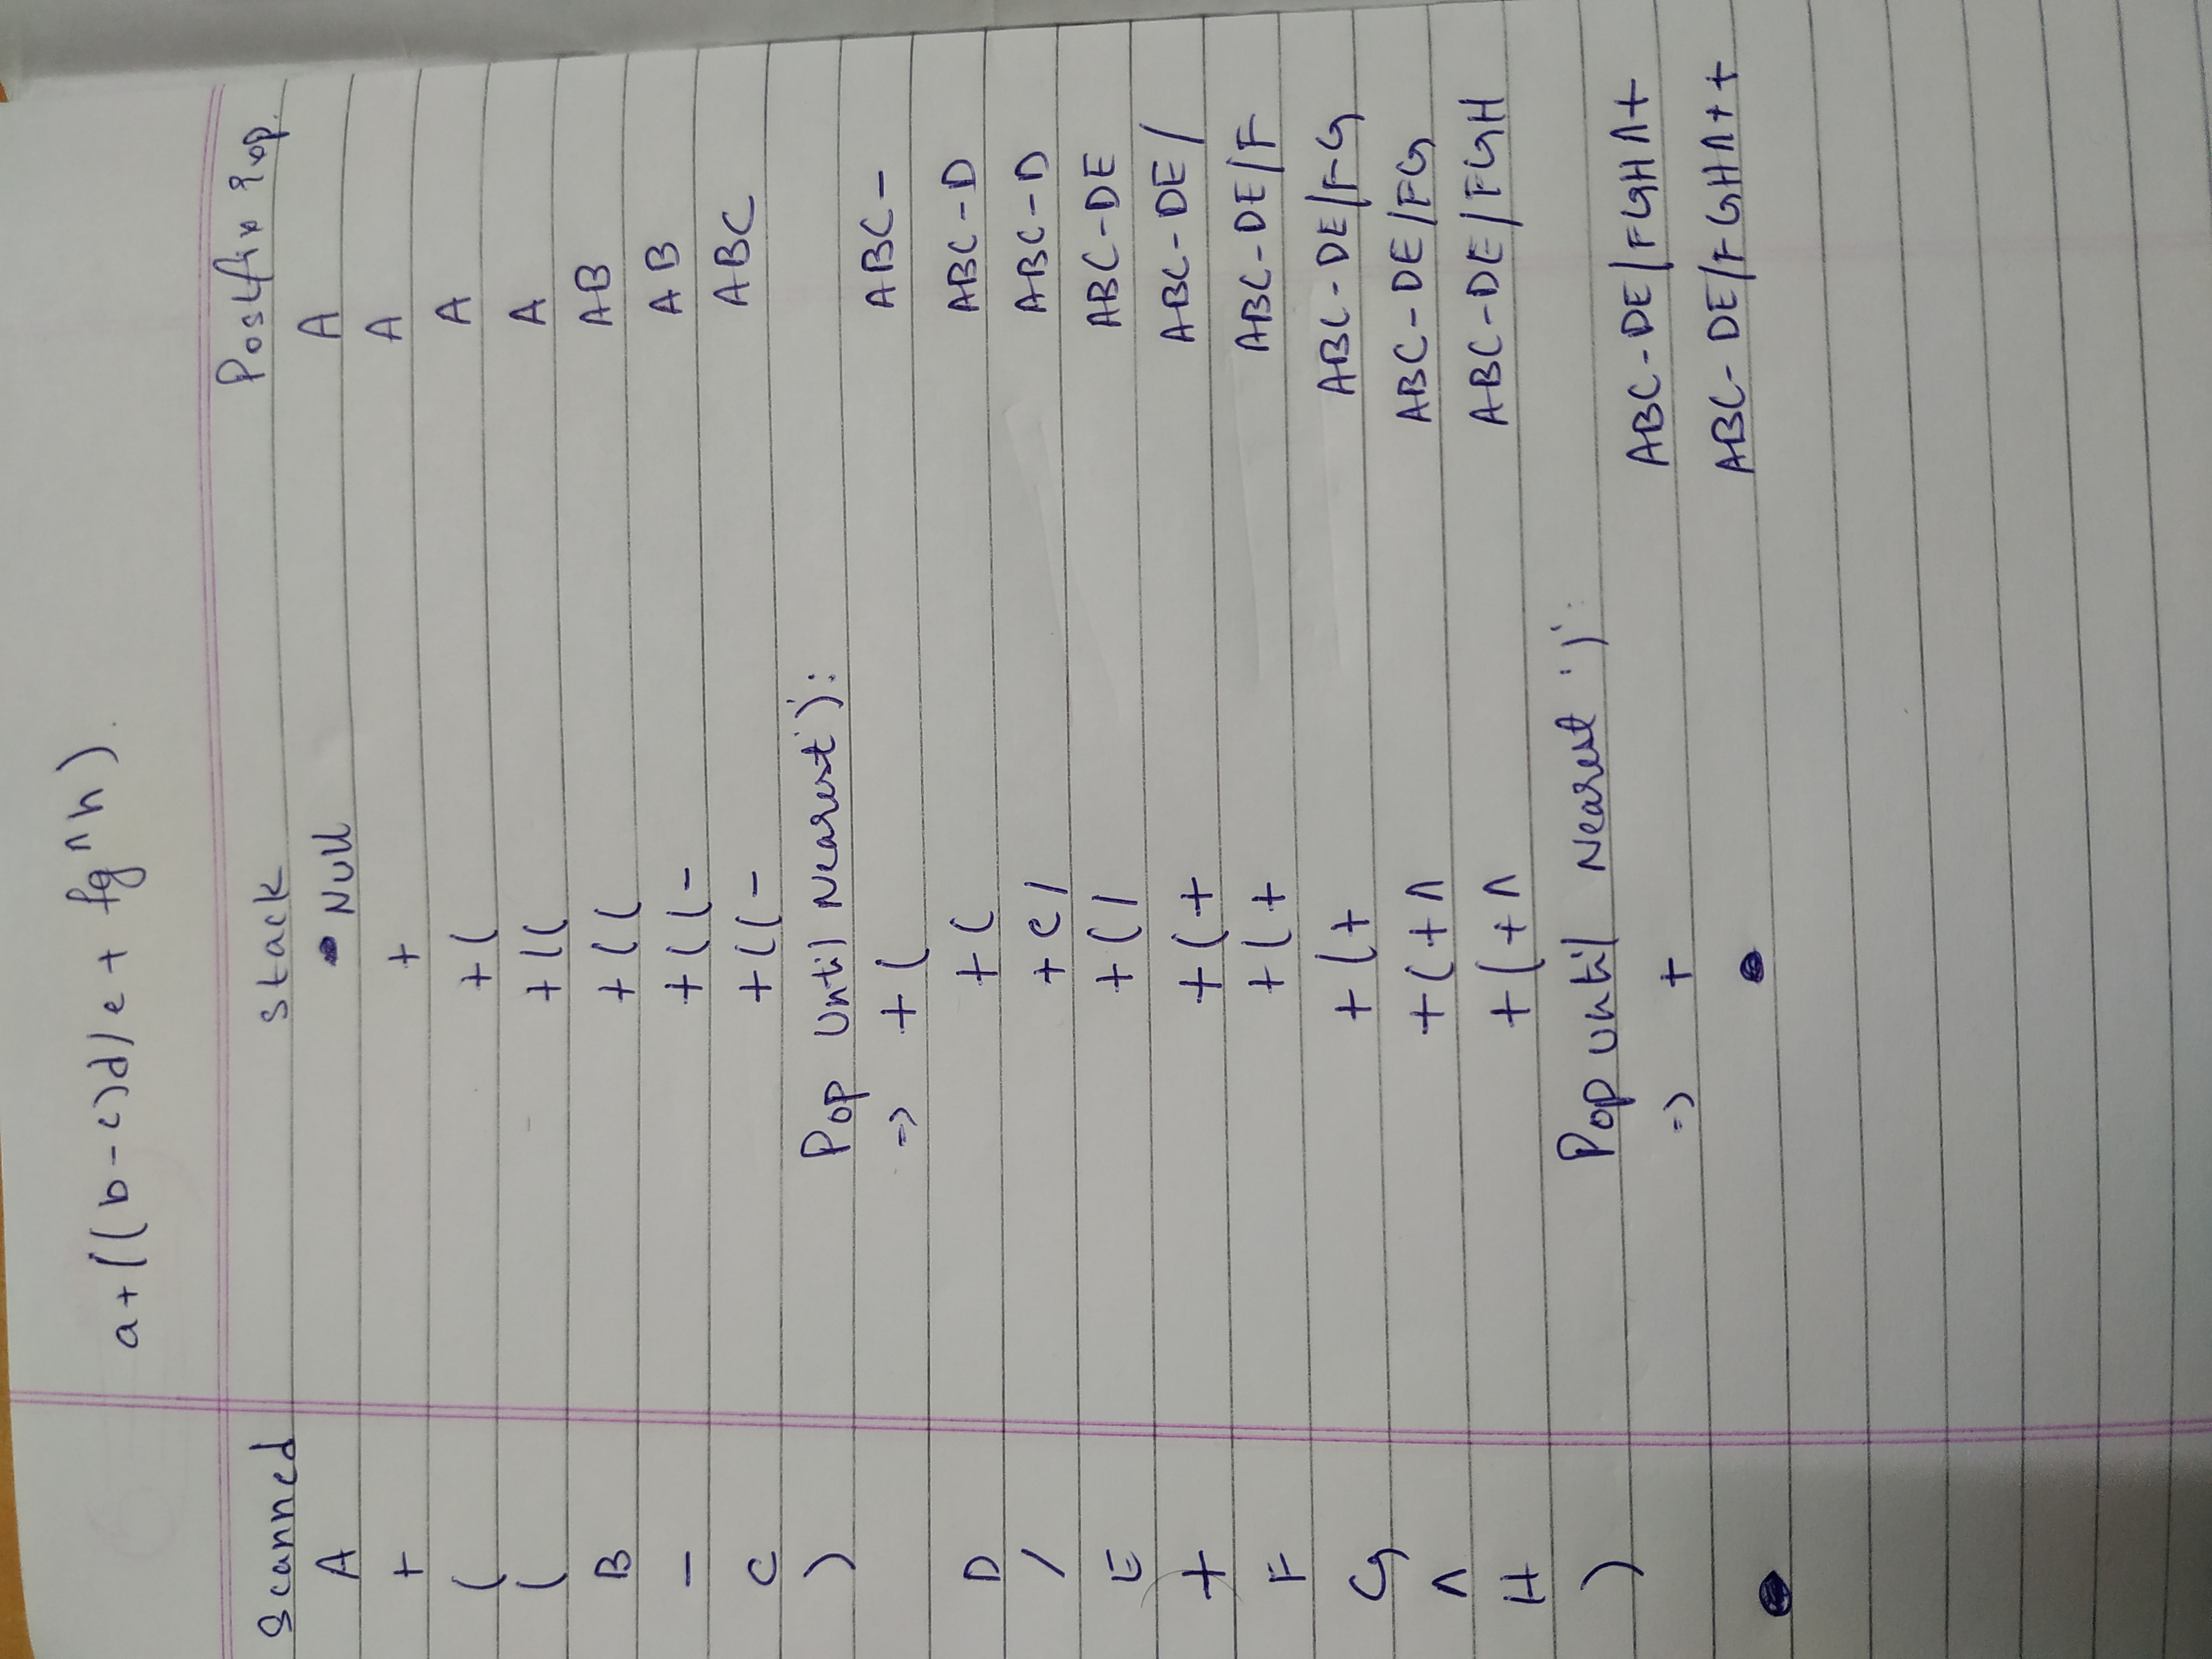 a+((b-c)d/e + fg^h).
Scanned Stack Postfix Exp.
A Null A
+ + A
( +( A
( +(( A
B +(( AB
- +((- AB
C +((- ABC
) Pop Until Nearest ')':
=> +( ABC-
D +( ABC-D
/ +(/ ABC-D
E +(/ ABC-DE
+ +(+ ABC-DE/
F +(+ ABC-DE/F
G +(+ ABC-DE/FG
^ +(+^ ABC-DE/FG
H +(+^ ABC-DE/FGH
) Pop until Nearest ')':
=> + ABC-DE/FGH^+
ABC-DE/FGH^++